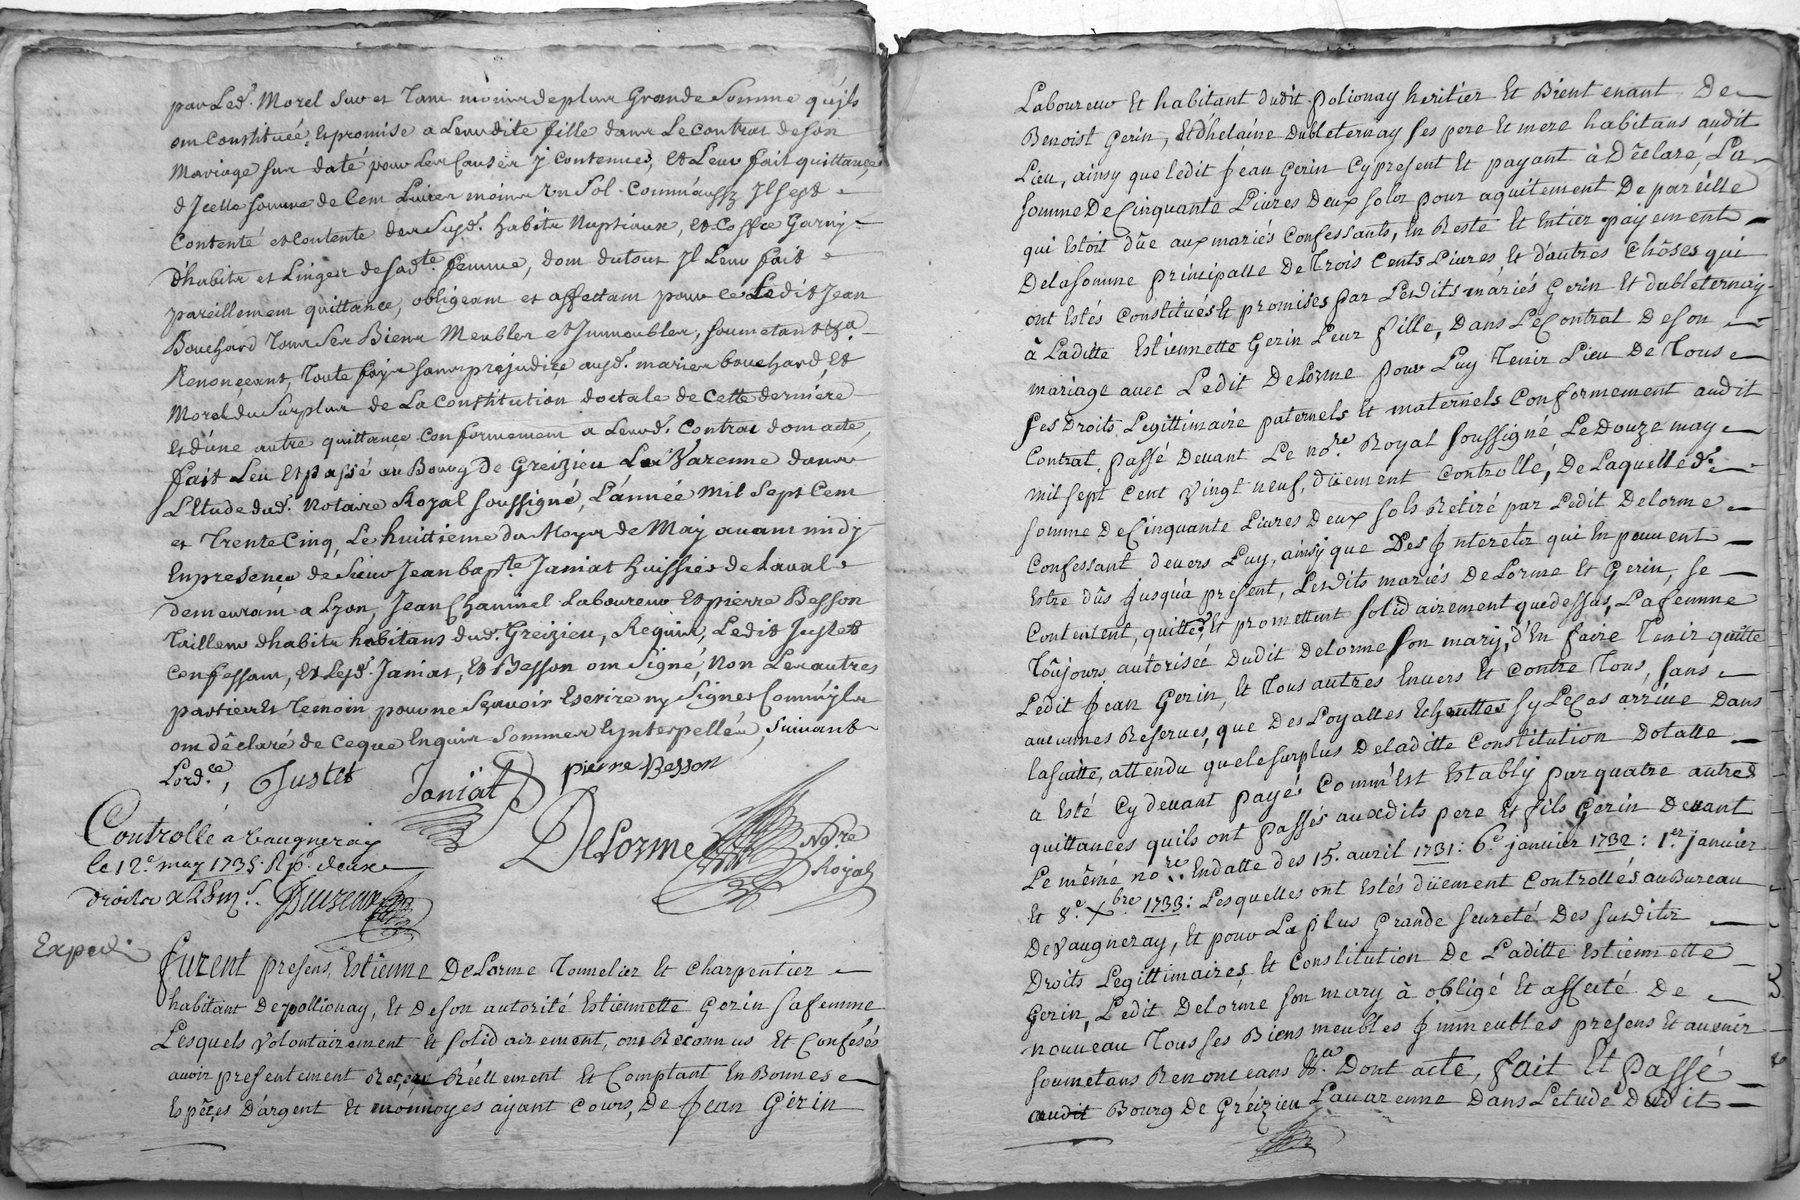 par Led.t Morel sur et Tant moins de plus Grande Somme qu'ils
ont Constituée, Et promise a Leurdite fille dans Le contrat de son
Mariage sur daté pour Les Causes y contenues, et Leur fait quittance
d'Jcelle somme de Cent Livres moins un Sol Comm'aussy Jl sest
Contenté et contente des susd. habits Nuptiaux, et Coffre Garny
d'habits et Linges de sad.te femme, dont du tout Jl Leur fait
pareillement quittance, obligeant et affectant pour ce Ledit Jean
Bouchard Tous Ses Biens Meubles et Jmmoubles, soumetant &.a
Renonçeant, Toute fois sans prejudice ausd. maries bouchard, et
Morel du Surplus de La Constitution doctale de Cette derniere
et d'une autre quittance conformement a Leurd. Contrat dont acte,
fait Leu et passé au Bourg de Greizieu La Varenne dans
L'Etude dud. Notaire Royal soussigné, L'année Mil Sept Cent
et Trente Cinq, Le huittieme du Moys de May avant midy
En presence de Sieur Jean bap.te Janiat huissier de Laval
demeurant a Lyon, Jean Chaminel Laboureur Et pierre Besson
Tailleur d'habits habitans dud. Greizieu, Requis, Ledit Justet
Confessant, et Lesd. Janiat, et Besson ont Signé, Non Les autres
parties et Temoin pour ne Sçavoir Escrire ny Signer Comm'ils
ont dêclaré de Ce que Enquis Sommes Eynterpellés, suivant
Lord.ce, Justet Janiat pierre Besson
Controllé a Vaugneray
DeLorme No.re
le 12.e may 1735. R
Royal
droits
Exped.
furent presens, Estienne DeLorme Tonnelier Et Charpentier
habitant De pollionay, Et De son autorité Estiennette Gerin sa femme,
Lesquels Volontairement Et solidairement, ont Reconnus Et Confésés
avoir presentement Reçeu Réellement Et Comptant En Bonnes
Espêces D'argent Et monnoyes ayant Cours, De Jean Gerin
Laboureur Et habitant dudit polionay heritier Et Bient enant De
Benoist Gerin, Et D'helaine Dubleternay ses pere Et mere habitans audit
Lieu, ainsy que ledit Jean Gerin Cy present Et payant à Dêclaré, La
somme De Cinquante Livres Deux sols pour aquitement De pareille
qui Estoit dûe aux mariés Confessants, En Reste Et Entier payement
De la somme principalle De Trois Cents Livres, Et d'autres Chôses qui
ont Estés Constitués Et promises par Lesdits mariés Gerin Et dubleternay
à Laditte Estiennette Gerin Leur fille, Dans Le Contrat De son
mariage avec Ledit DeLorme pour Luy Tenir Lieu De Tous
ses Droits Legittimaire paternels Et maternels Conformement audit
Contrat passé Devant Le no.re Royal soussigné Le Douze may
mil sept Cent Vingt neuf, düement Controllé, De Laquelle d.e
somme De Cinquante Livres Deux sols Retiré par Ledit Delorme
Confessant devers Luy, ainsy que Des Jnterets qui En peuvent
Estre dûs Jusqu'à present, Lesdits mariés DeLorme Et Gerin, se
Contentent, quittent, Et promettent solidairement que dessus, La femme
Toûjours autorisée dudit Delorme son mary, D'En faire Tenir quitte
Ledit Jean Gerin, Et Tous autres Envers Et Contre Tous, sans
aucunnes Reserves, que Des Loyalles Echeuttes sy Le Cas arrive Dans
la suitte, attendu que le surplus De laditte Constitution Dotalle
a Esté Cy devant payés Comm'Est Estably par quatre autres
quittances qu'ils ont passés auxdits pere Et fils Gerin Devant
Le même no.re En datte des 15. avril 1731: 6.e janvier 1732: 1.er janvier
Et 8.e Xbre 1733: Lesquelles ont Estés düement Controllés au Bureau
De Vaugneray, Et pour La plus Grande seureté Des susdits
Droits Legittimaires, Et Constitution De Laditte Estiennette
Gerin, Ledit Delorme son mary à obligé Et affecté De
nouveau Tous ses Biens meubles Jmmeubles presens Et avenir
soumetans Renonceans &.a Dont acte, fait Et passé
audit Bourg De Greizieu Lavarenne Dans L'etude Dudit